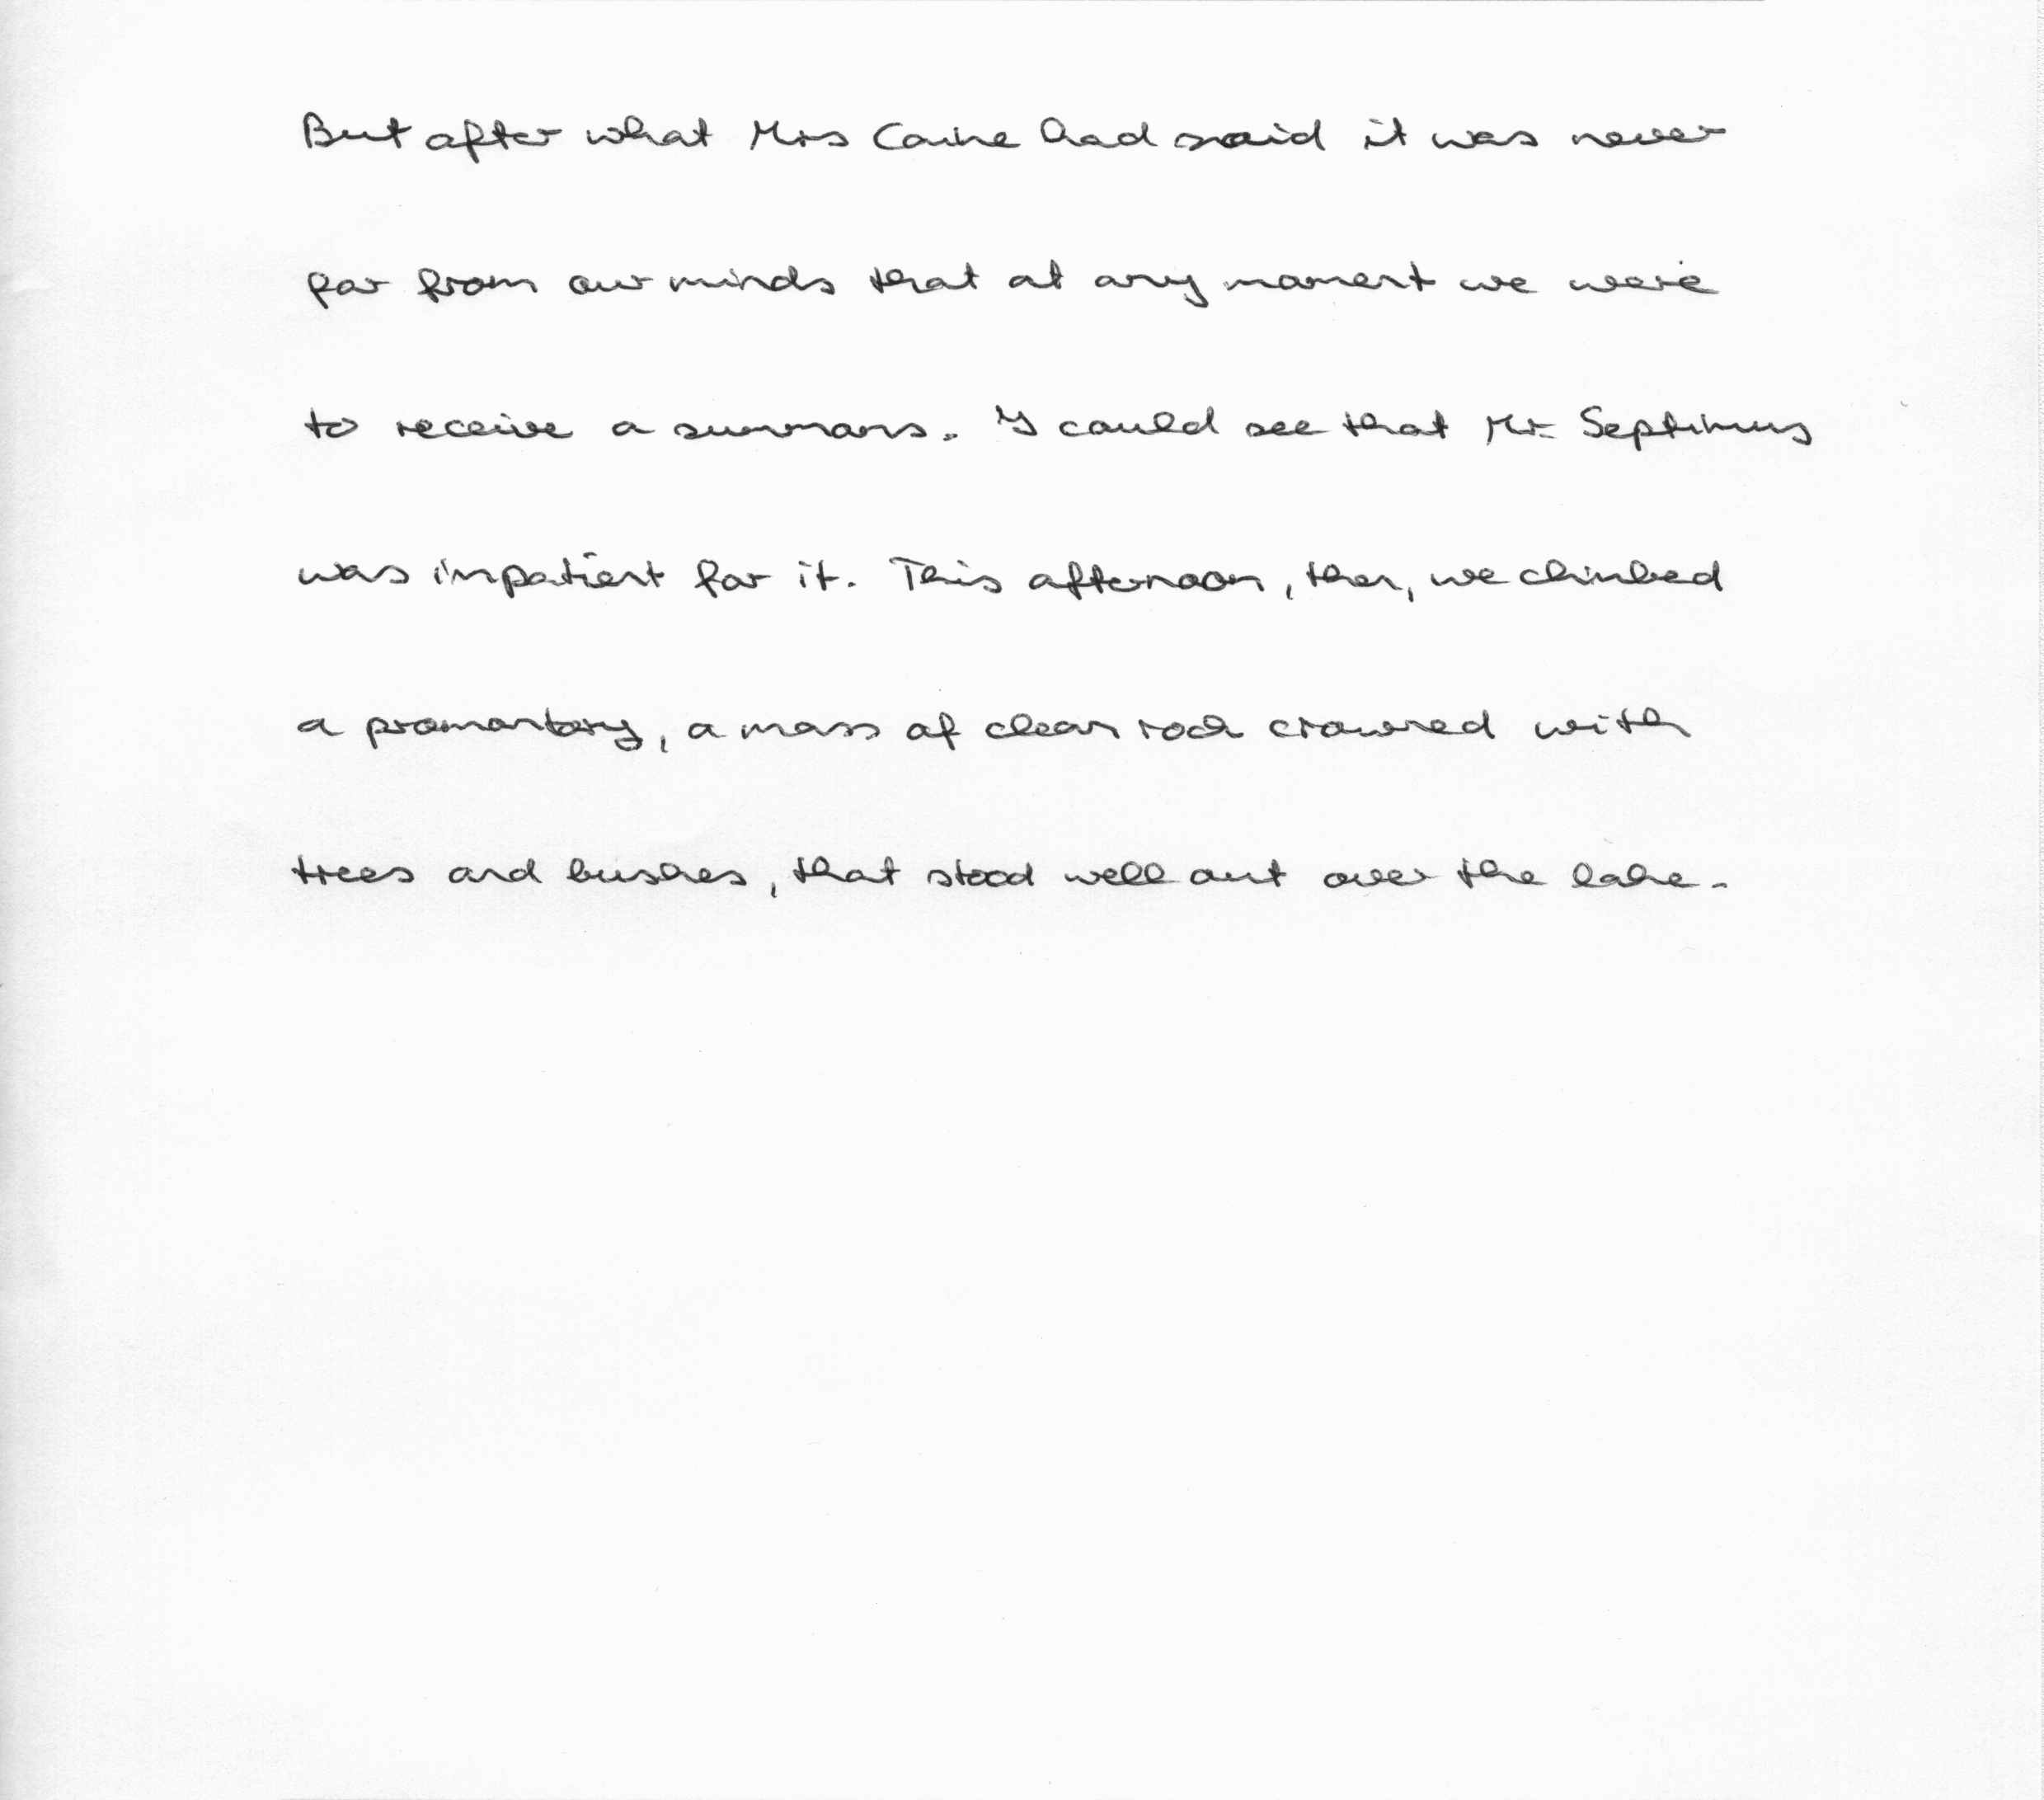 But after what Mrs Caine had said it was never
far from our minds that at any moment we were
to receive a summons. I could see that Mr. Septimus
was impatient for it. This afternoon, then, we climbed
a promontory, a mass of clean rock crowned with
trees and bushes, that stood well out over the lake.